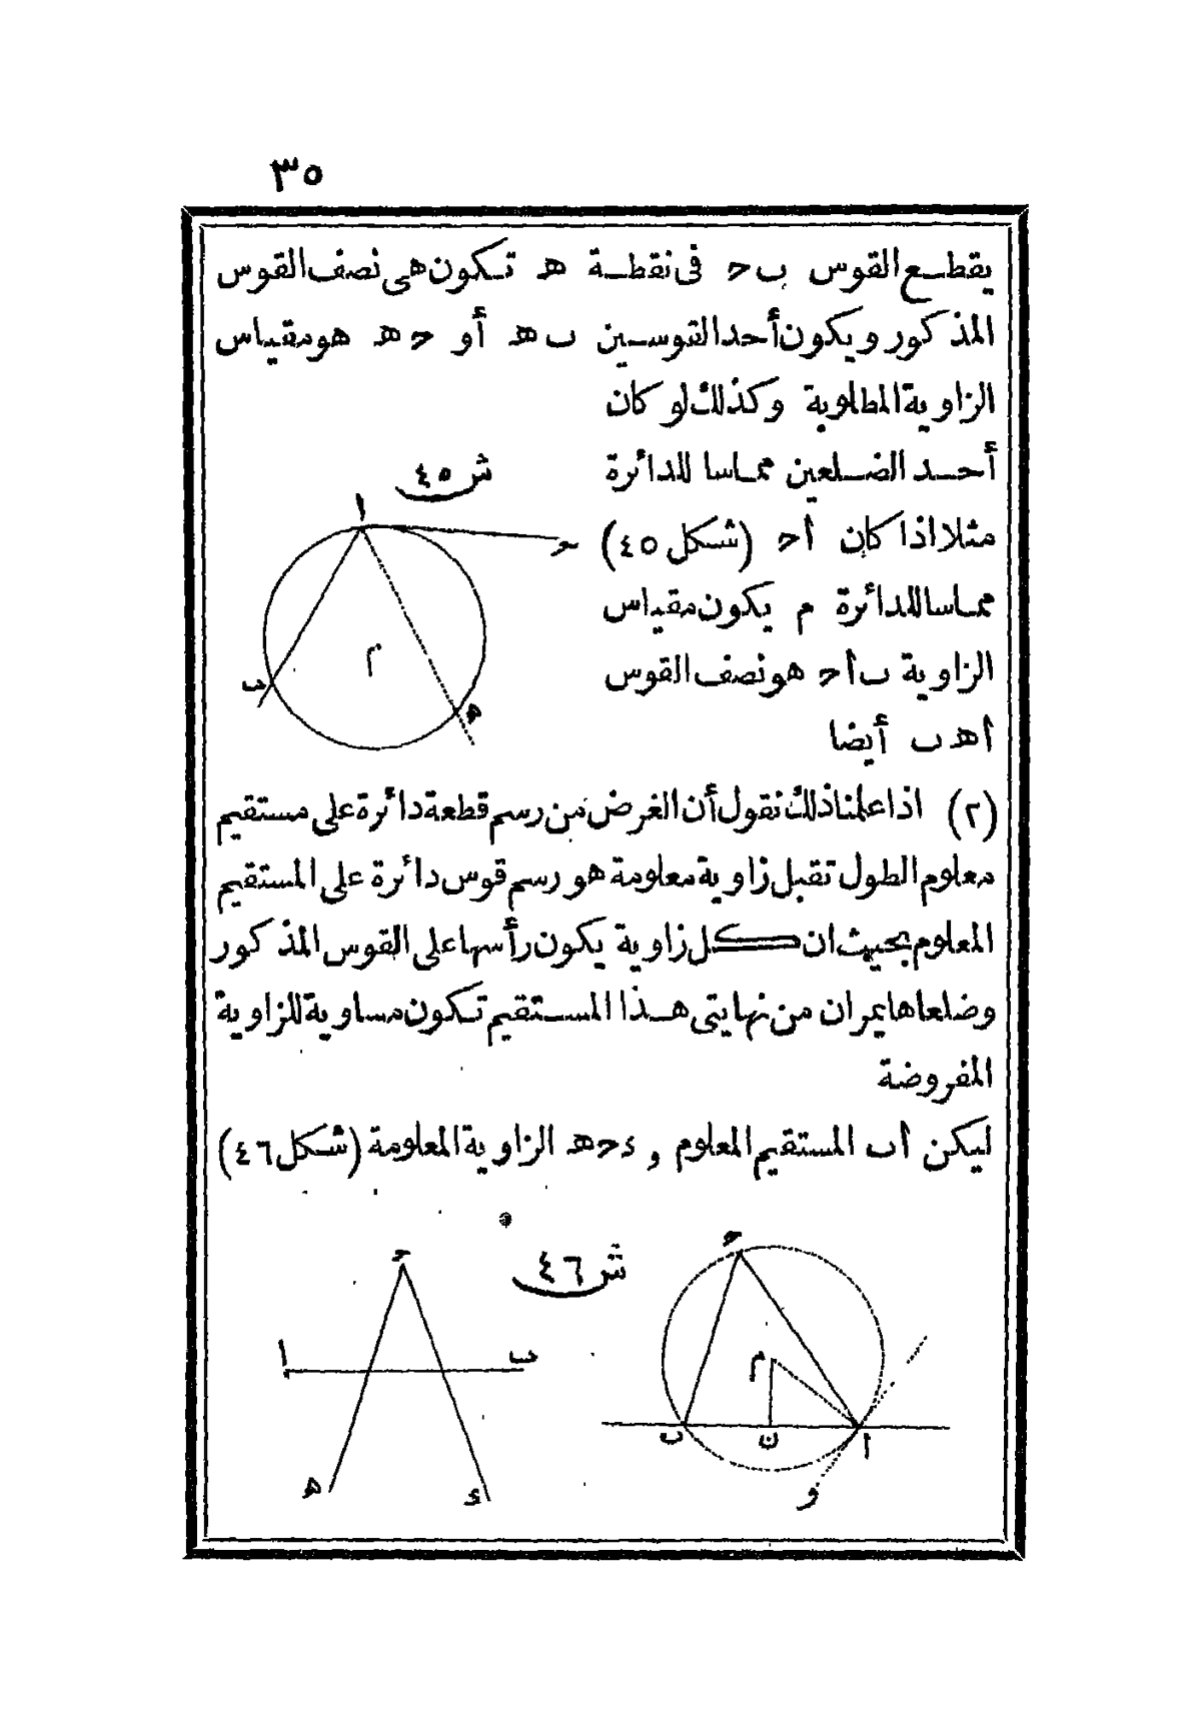 ٣٥
يقطع القوس ب ح فى نقطة ه تكون هى نصف القوس
المذكور ويكون أحد القوسين ب ه أو ح ه هو مقياس
الزاوية المطلوبة وكذلك لو كان
أحد الضلعين مماسا للدائرة
مثلا اذا كان ا ح (شكل ٤٥)
مماسا للدائرة م يكون مقياس
الزاوية ب ا ح هو نصف القوس
ا ه ب أيضا
ش ٤٥
ا
ح
م
ب
ه
(٢) اذا علمنا ذلك نقول أن الغرض من رسم قطعة دائرة على مستقيم
معلوم الطول تقبل زاوية معلومة هو رسم قوس دائرة على المستقيم
المعلوم بحيث ان كل زاوية يكون رأسها على القوس المذكور
وضلعاها يمران من نهايتى هذا المستقيم تكون مساوية للزاوية
المفروضة
ليكن ا ب المستقيم المعلوم و ء ح ه الزاوية المعلومة (شكل ٤٦)
ش ٤٦
ح
م
ب
ن
ا
و
ح
ا
ب
ه
ء